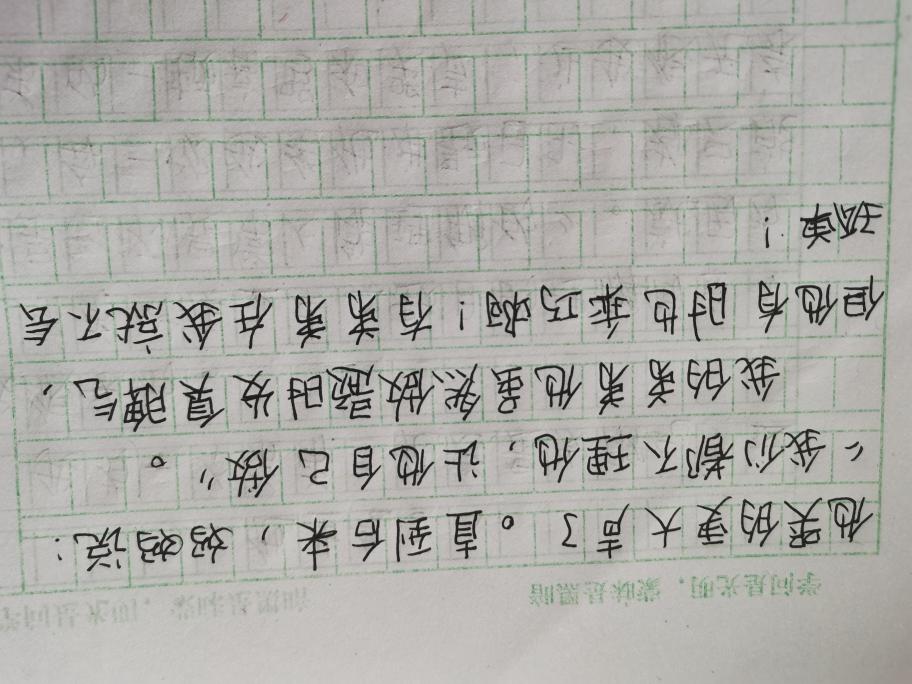 学问是光明，蒙昧是黑暗
他哭的更大声了。直到后来，妈妈说：
“我们都不理他，让他自己做”。
我的弟弟他虽然做题时发臭脾气，
但他有时也乖巧啊！有弟弟在我就不会
孤单！